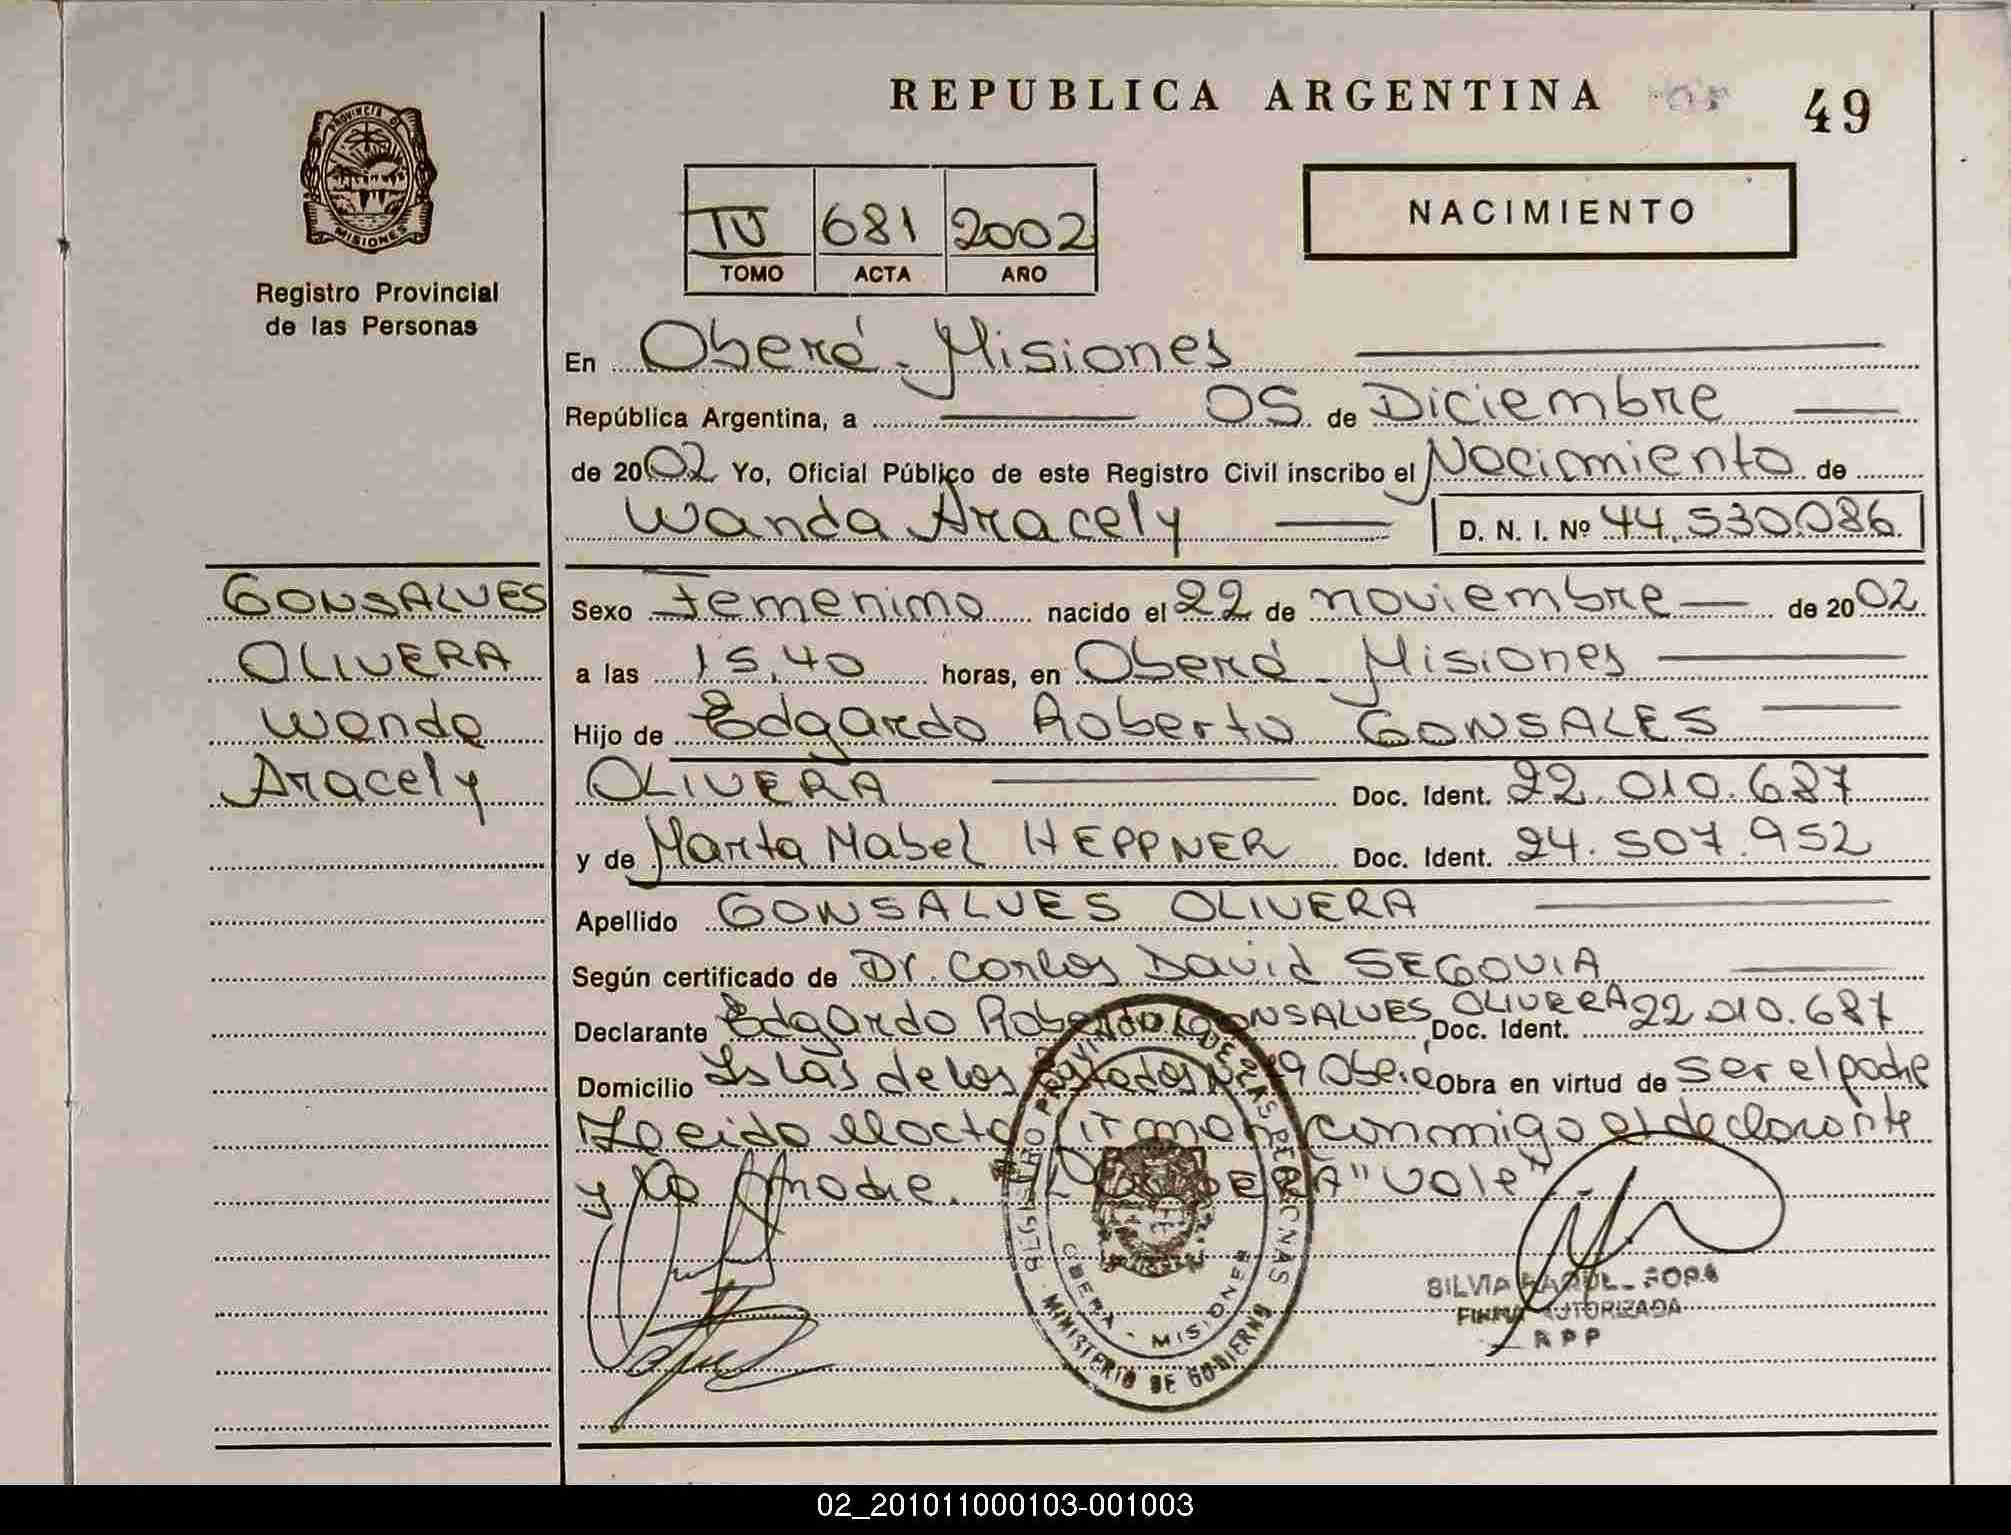 REPUBLICA ARGENTINA
49
PROVINCIA D
MISIONES
Registro Provincial
de las Personas
NACIMIENTO
IV 681 2002
TOMO ACTA AÑO
En Oberá - Misiones
República Argentina, a 05 de Diciembre
de 2002 Yo, Oficial Público de este Registro Civil inscribo el Nacimiento de
Wanda Aracely D. N. I. Nº 44.530.086
GONSALVES
OLIVERA
Wanda
Aracely
Sexo Femenino nacido el 22 de noviembre de 2002
a las 15,40 horas, en Oberá - Misiones
Hijo de Edgardo Roberto GONSALES
OLIVERA Doc. Ident. 22.010.687
y de Marta Mabel HEPPNER Doc. Ident. 24.507.952
Apellido GONSALVES OLIVERA
Según certificado de Dr. Carlos David SEGOVIA
Declarante Edgardo Roberto GONSALVES OLIVERA Doc. Ident. 22.010.687
Domicilio Islas de los Estados Oberá Obra en virtud de ser el padre
Leido el acta firman conmigo el declarante
y la madre. "Vale"
REGISTRO PROVINCIAL DE LAS PERSONAS
OBERA - MISIONES
MINISTERIO DE GOBIERNO
SILVIA
FIRMA AUTORIZADA
RPP
02_201011000103-001003